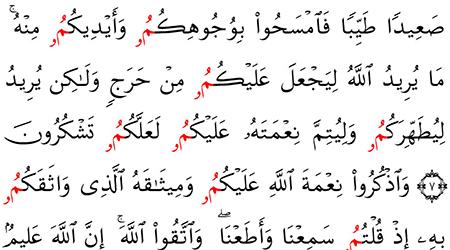 صَعِيدًا طَيِّبًا فَٱمْسَحُوا۟ بِوُجُوهِكُمُۥ وَأَيْدِيكُمُۥ مِنْهُ ۚ
مَا يُرِيدُ ٱللَّهُ لِيَجْعَلَ عَلَيْكُمُۥ مِنْ حَرَجٍ وَلَـٰكِن يُرِيدُ
لِيُطَهِّرَكُمُۥ وَلِيُتِمَّ نِعْمَتَهُۥ عَلَيْكُمُۥ لَعَلَّكُمُۥ تَشْكُرُونَ
﴿٧﴾ وَٱذْكُرُوا۟ نِعْمَةَ ٱللَّهِ عَلَيْكُمُۥ وَمِيثَـٰقَهُ ٱلَّذِى وَاثَقَكُمُۥ
بِهِۦٓ إِذْ قُلْتُمُۥ سَمِعْنَا وَأَطَعْنَا ۖ وَٱتَّقُوا۟ ٱللَّهَ ۚ إِنَّ ٱللَّهَ عَلِيمٌۢ